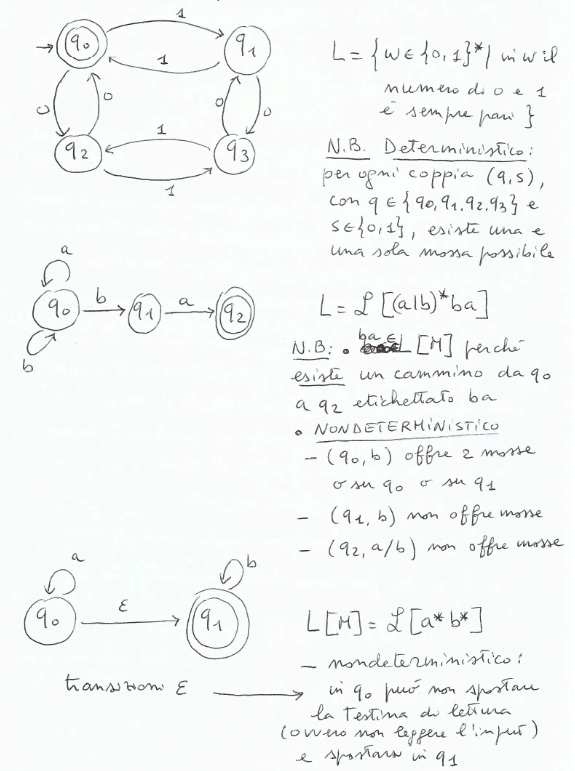 1
q0
q1
L = {w ∈ {0,1}* | in w il
1
numero di 0 e 1
0
0
0
0
è sempre pari }
1
q2
q3
N.B. Deterministico:
1
per ogni coppia (q,s),
con q ∈ {q0,q1,q2,q3} e
s ∈ {0,1}, esiste una e
una sola mossa possibile
a
q0
b
q1
a
q2
L = ℒ [(a|b)* ba]
b
N.B: • ba ∈ L [M] perché
esiste un cammino da q0
a q2 etichettato ba
• NONDETERMINISTICO
– (q0, b) offre 2 mosse
o su q0 o su q1
– (q1, b) non offre mosse
– (q2, a/b) non offre mosse
a
b
q0
ε
q1
L[M] = ℒ [a* b*]
– nondeterministico:
transizioni ε
in q0 può non spostare
la testina di lettura
(ovvero non leggere l'input)
e spostarsi in q1